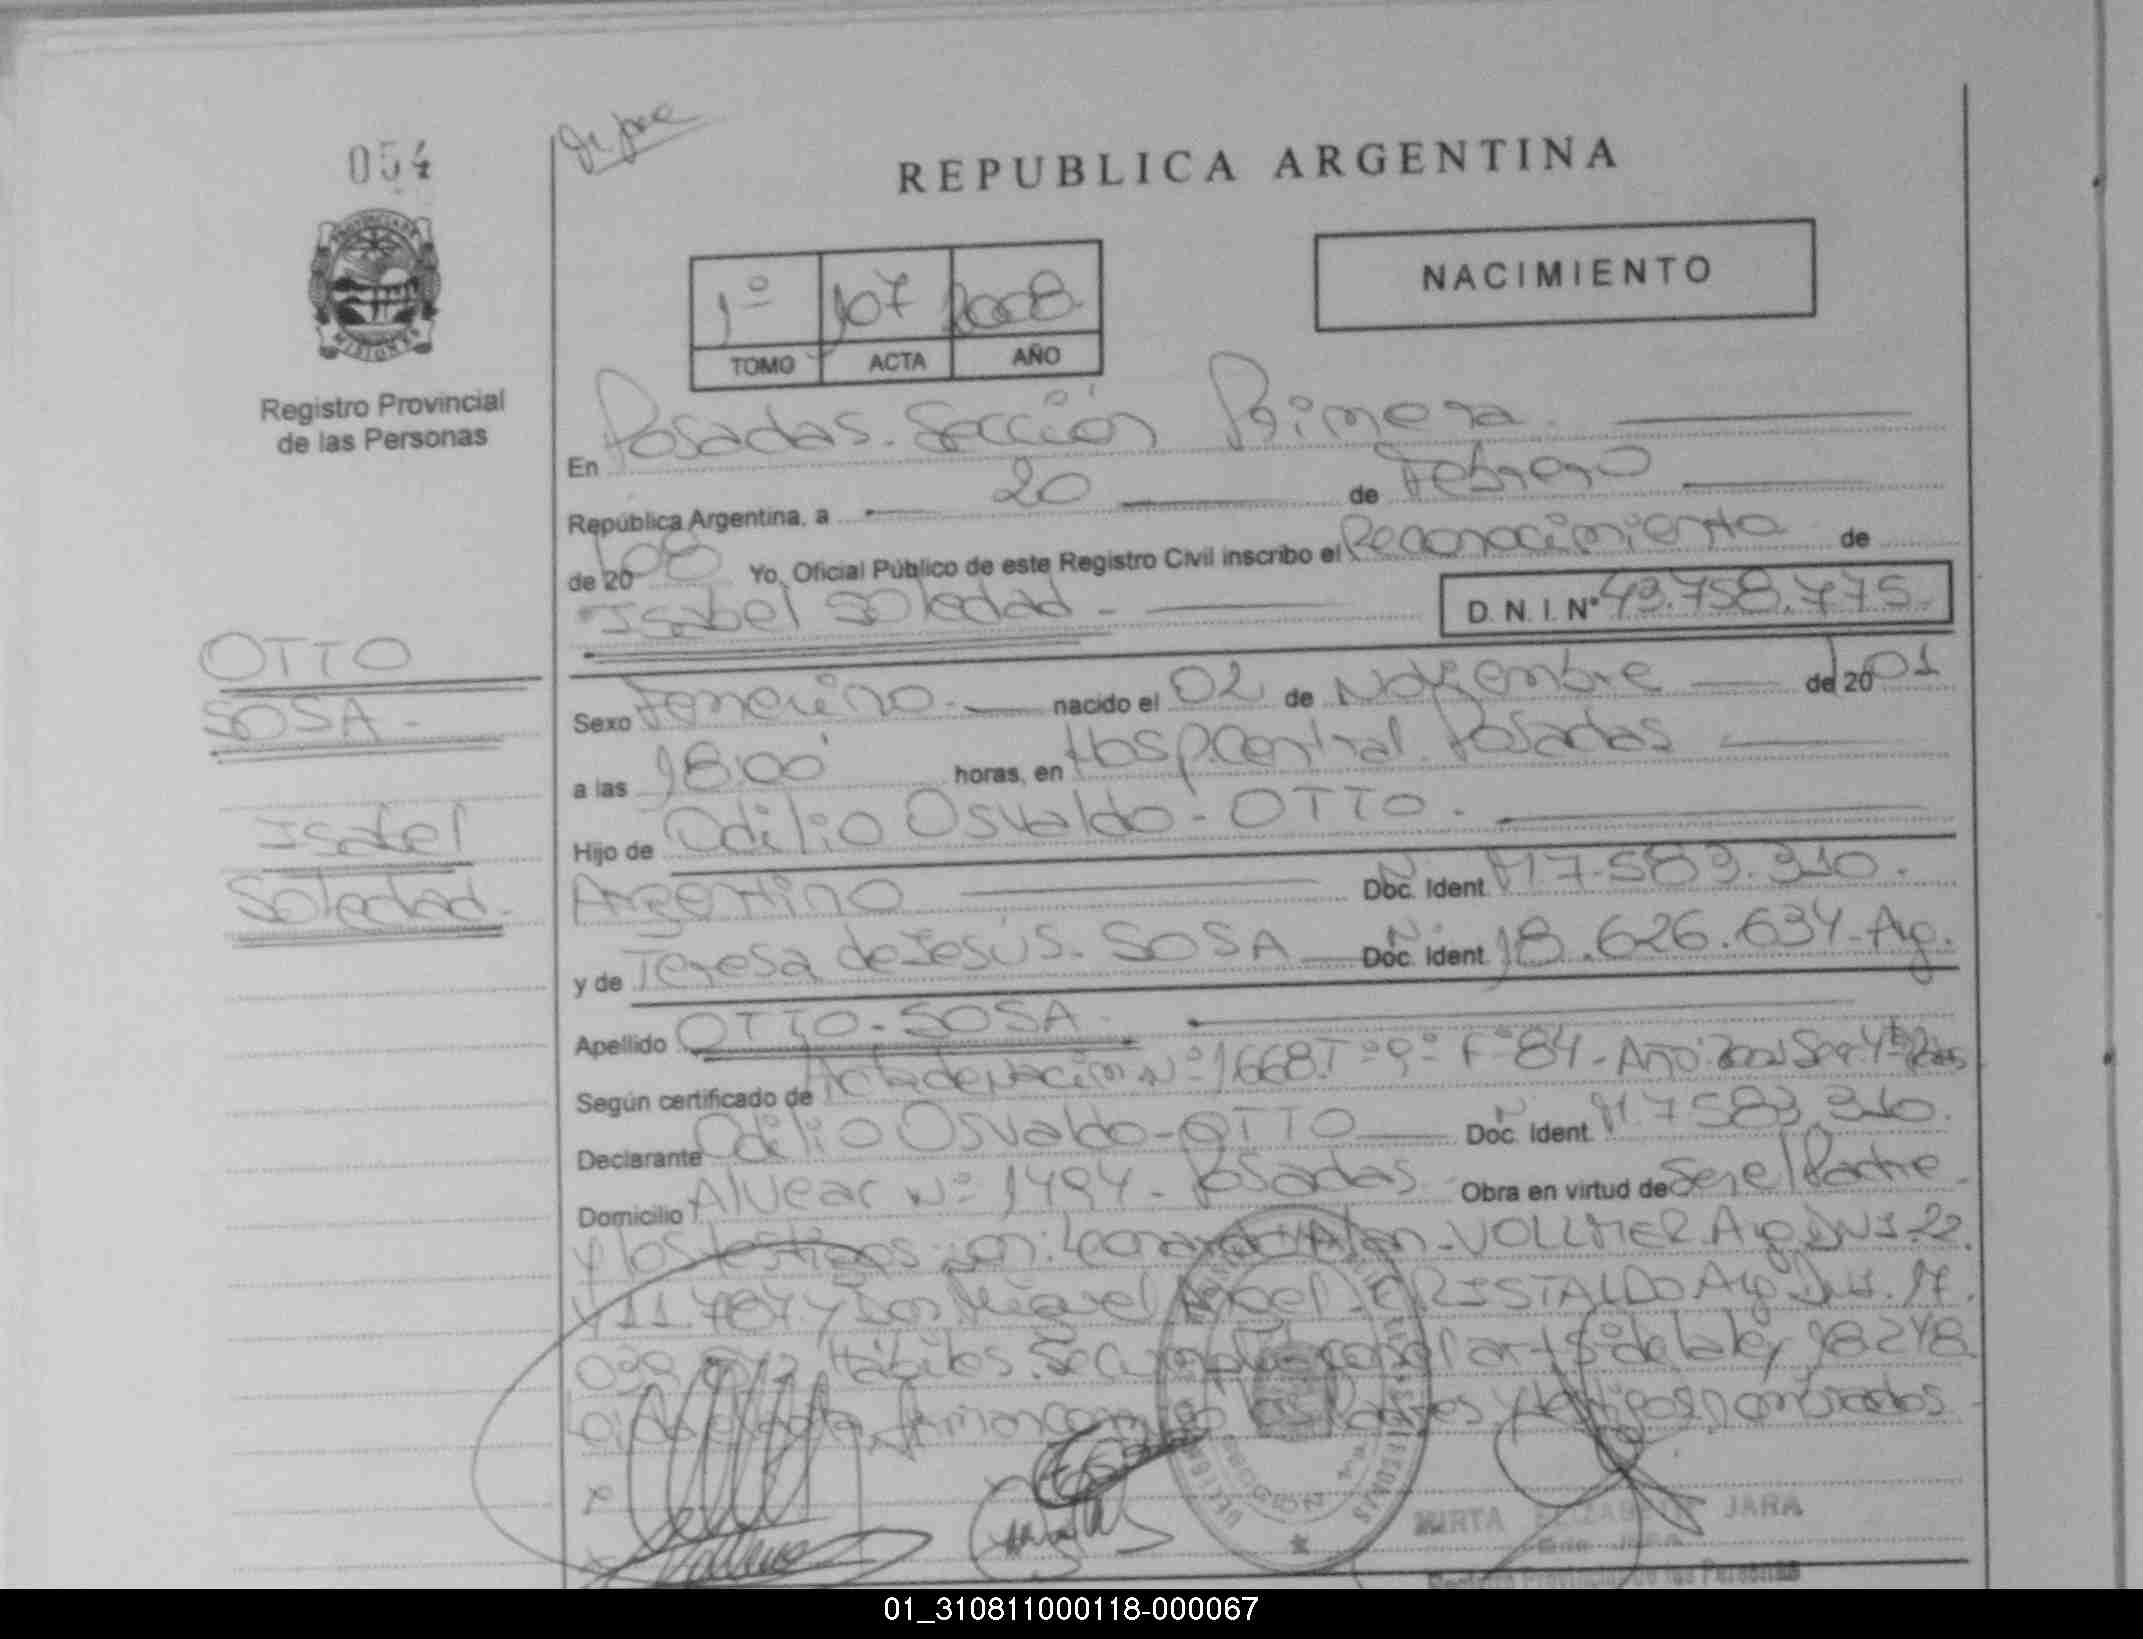 054
REPUBLICA ARGENTINA
NACIMIENTO
1º 107 2008
TOMO ACTA AÑO
Registro Provincial
de las Personas
En Posadas. Sección Primera.
República Argentina, a 20 de Febrero
de 2008 Yo, Oficial Público de este Registro Civil inscribo el Reconocimiento de
Isabel Soledad - D. N. I. Nº 43.758.775.
OTTO
SOSA -
Isabel
Soledad.
Sexo Femenino. nacido el 02 de Noviembre de 2001
a las 18:00 horas, en Hosp. Central. Posadas
Hijo de Odilio Osvaldo - OTTO.
Argentino Doc. Ident. Nº M 7.583.310.
y de Teresa de Jesús. SOSA Doc. Ident. Nº 18.626.634 - Arg.
Apellido OTTO - SOSA -
Según certificado de Acta de Nación Nº 1668. Tº 9º Fº 84 - Año: 2001 Sec. 4ta
Declarante Odilio Osvaldo - OTTO Doc. Ident. Nº M 7583.310.
Domicilio Alvear Nº 1494 - Posadas Obra en virtud de Ser el Padre -
y los testigos son: Leonardo - VOLLMER Arg. DNI. 22.
411.787 y Don Miguel Angel CRISTALDO Arg. DNI. 17.
099. Hábiles. Se al art de la ley 18248
firman los Padres y testigos nombrados
MIRTA JARA
Registro Provincial de las Personas
01_310811000118-000067